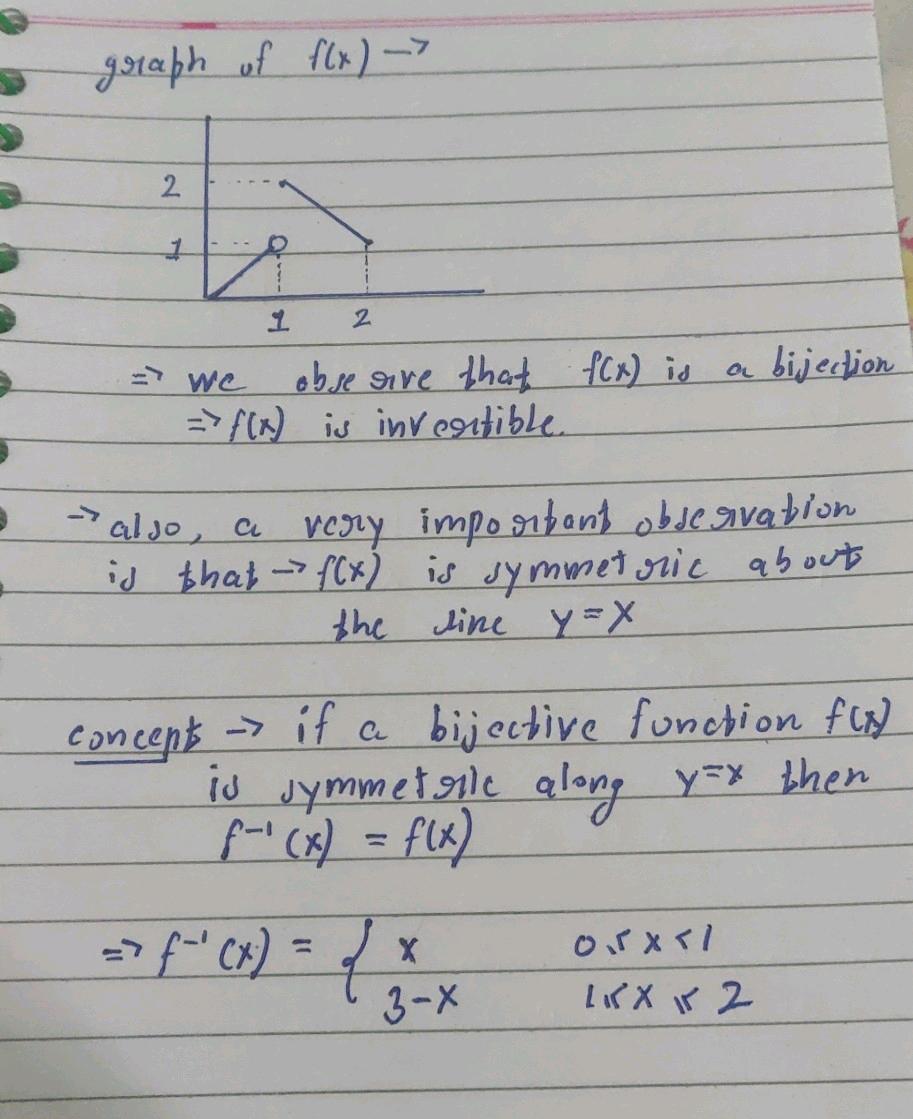 graph of f(x) →
2
1
1 2
⇒ we observe that f(x) is a bijection
⇒ f(x) is invertible.
→ also, a very important observation
is that → f(x) is symmetric about
the line y=x
concept → if a bijective function f(x)
is symmetric along y=x then
f⁻¹(x) = f(x)
⇒ f⁻¹(x) = { x 0 ≤ x < 1
3-x 1 ≤ x ≤ 2